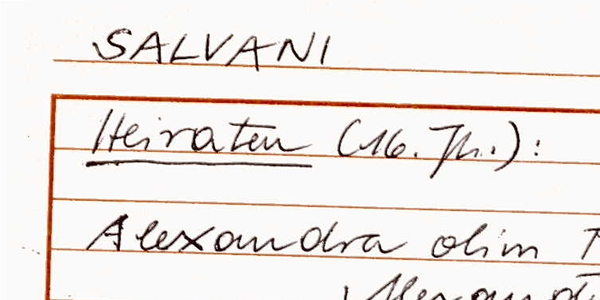 SALVANI
Heiraten (16. Jh.):
Alexandra olim